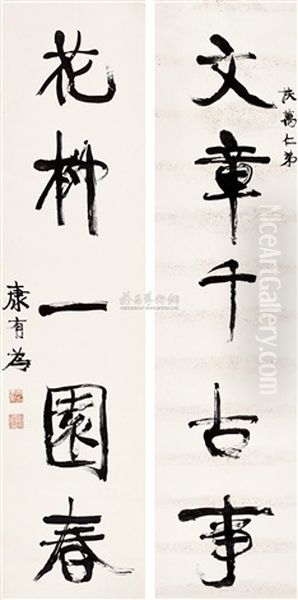 慶萬仁弟
文章千古事
花柳一園春
康有為
NiceArtGallery.com